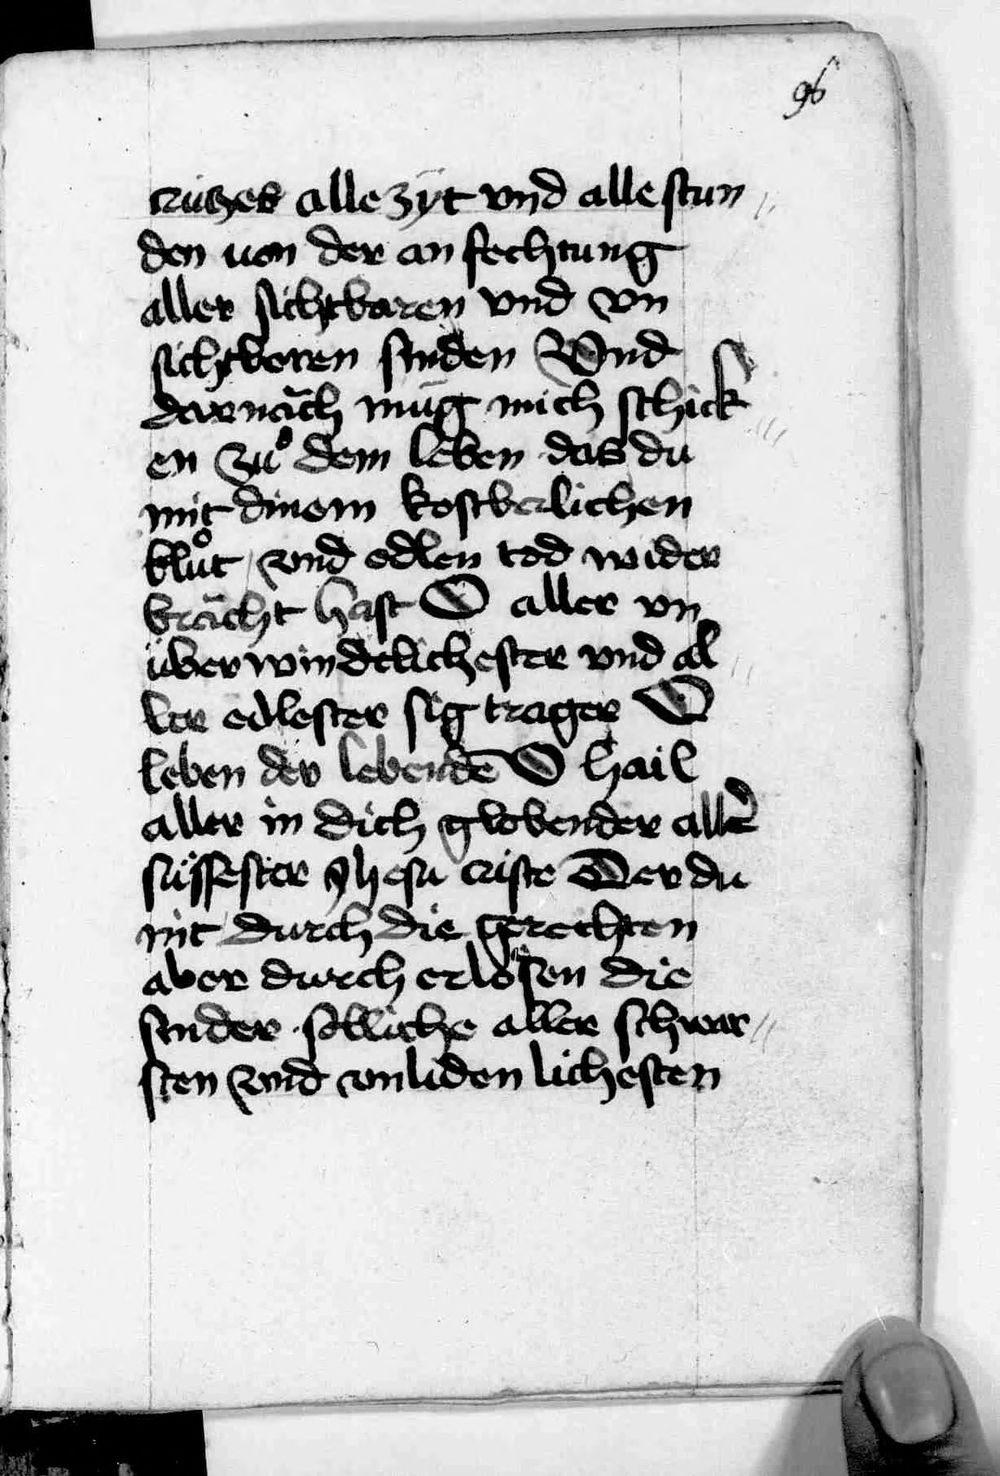 96
crützes alle zÿt vnd alle stun //
den uon der an fechtung
aller sichtbaren vnd vn
sichtboren sinden Vnd
darnǎch müg mich schick //
en zuͦ dem leben das du
mit dinem kostberlichen
bluͦt vnd edlen tod wider
brǎcht hast O aller vn
überwindtlichester vnd al //
ler edlester sig trager O
leben der lebendē O hail
aller in dich globender allɐ̉
süssester yhesu criste Der du
nit durch die gerechten
aber durch erlösen die
sinder sölliche aller schwar //
sten vnd vnliden lichesten